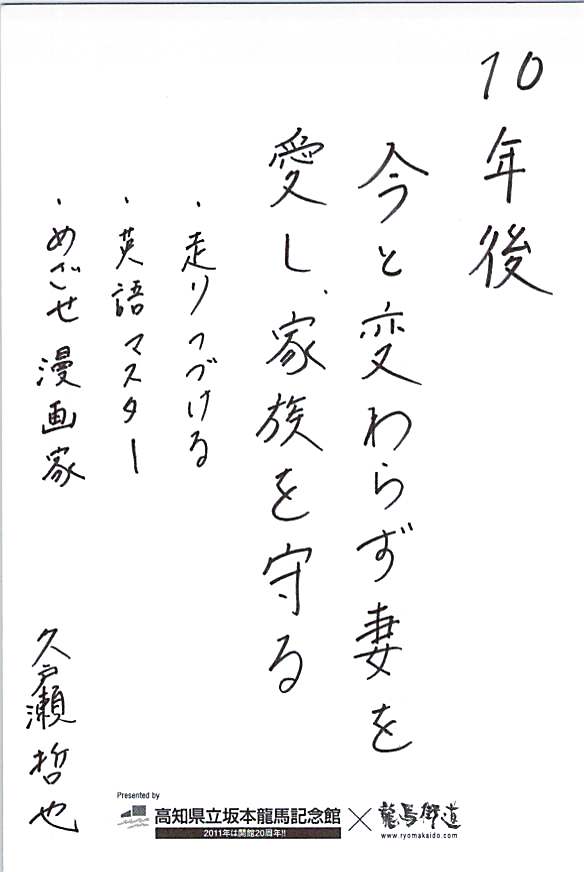 10年後
今と変わらず妻を
愛し、家族を守る
・走りつづける
・英語マスター
・めざせ漫画家
久戸瀬 哲也
Presented by
高知県立坂本龍馬記念館×龍馬街道
2011年は開館20周年!!
www.ryomakaido.com